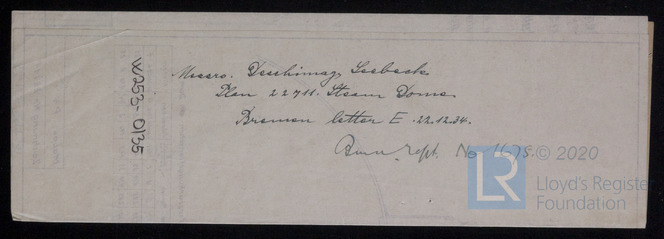 Messrs. Deschimag, Seebeck.
Plan 22711. Steam Dome.
Bremen letter E. 22.12.34.
Rept. No.
W253-0135
LR
© 2020
Lloyd's Register
Foundation